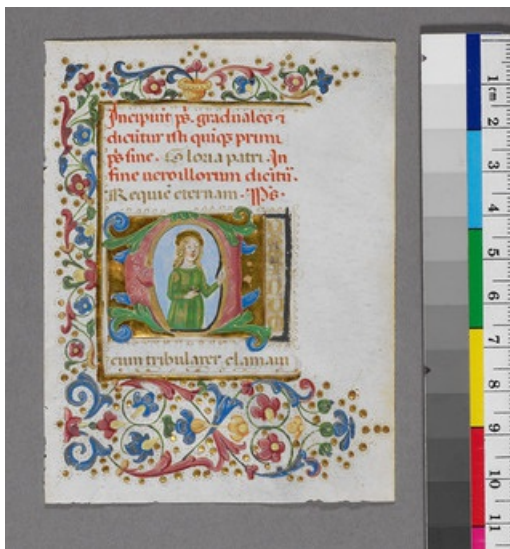 Incipiūt ps. graduales ⁊
dicūtur isti quiqꝫ primi
ps sine. Gloria patri. In
fine uero illorum dicit̄.
Requiē eternam. Ps.
AD
cum tribularer clamaui
1 cm 2 3 4 5 6 7 8 9 10 11